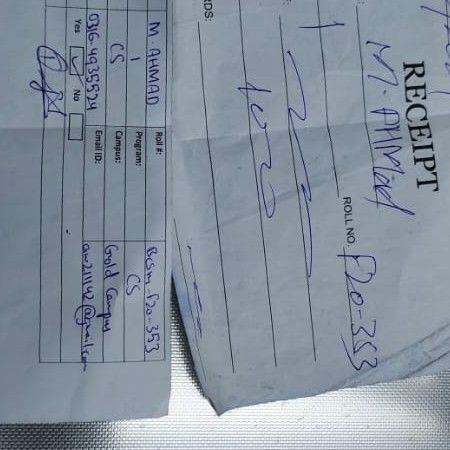 M AHMAD Roll #: BCSM-F20-353
1 Program: CS
CS Campus: Gold Campus
0316-4935574 Email ID:
Yes No
RECEIPT
M. AHMad ROLL NO. F20-353
1
RDS: